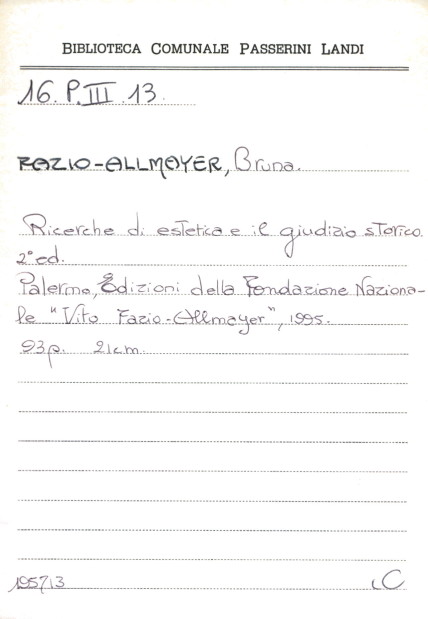 BIBLIOTECA COMUNALE PASSERINI LANDI
16. P. III. 13.
FAZIO-ALLMAYER, Bruna.
Ricerche di estetica e il giudizio storico.
2° ed.
Palermo, Edizioni della Fondazione Naziona-
le "Vito Fazio-Allmayer", 1995.
93p. 21cm.
195713
iC